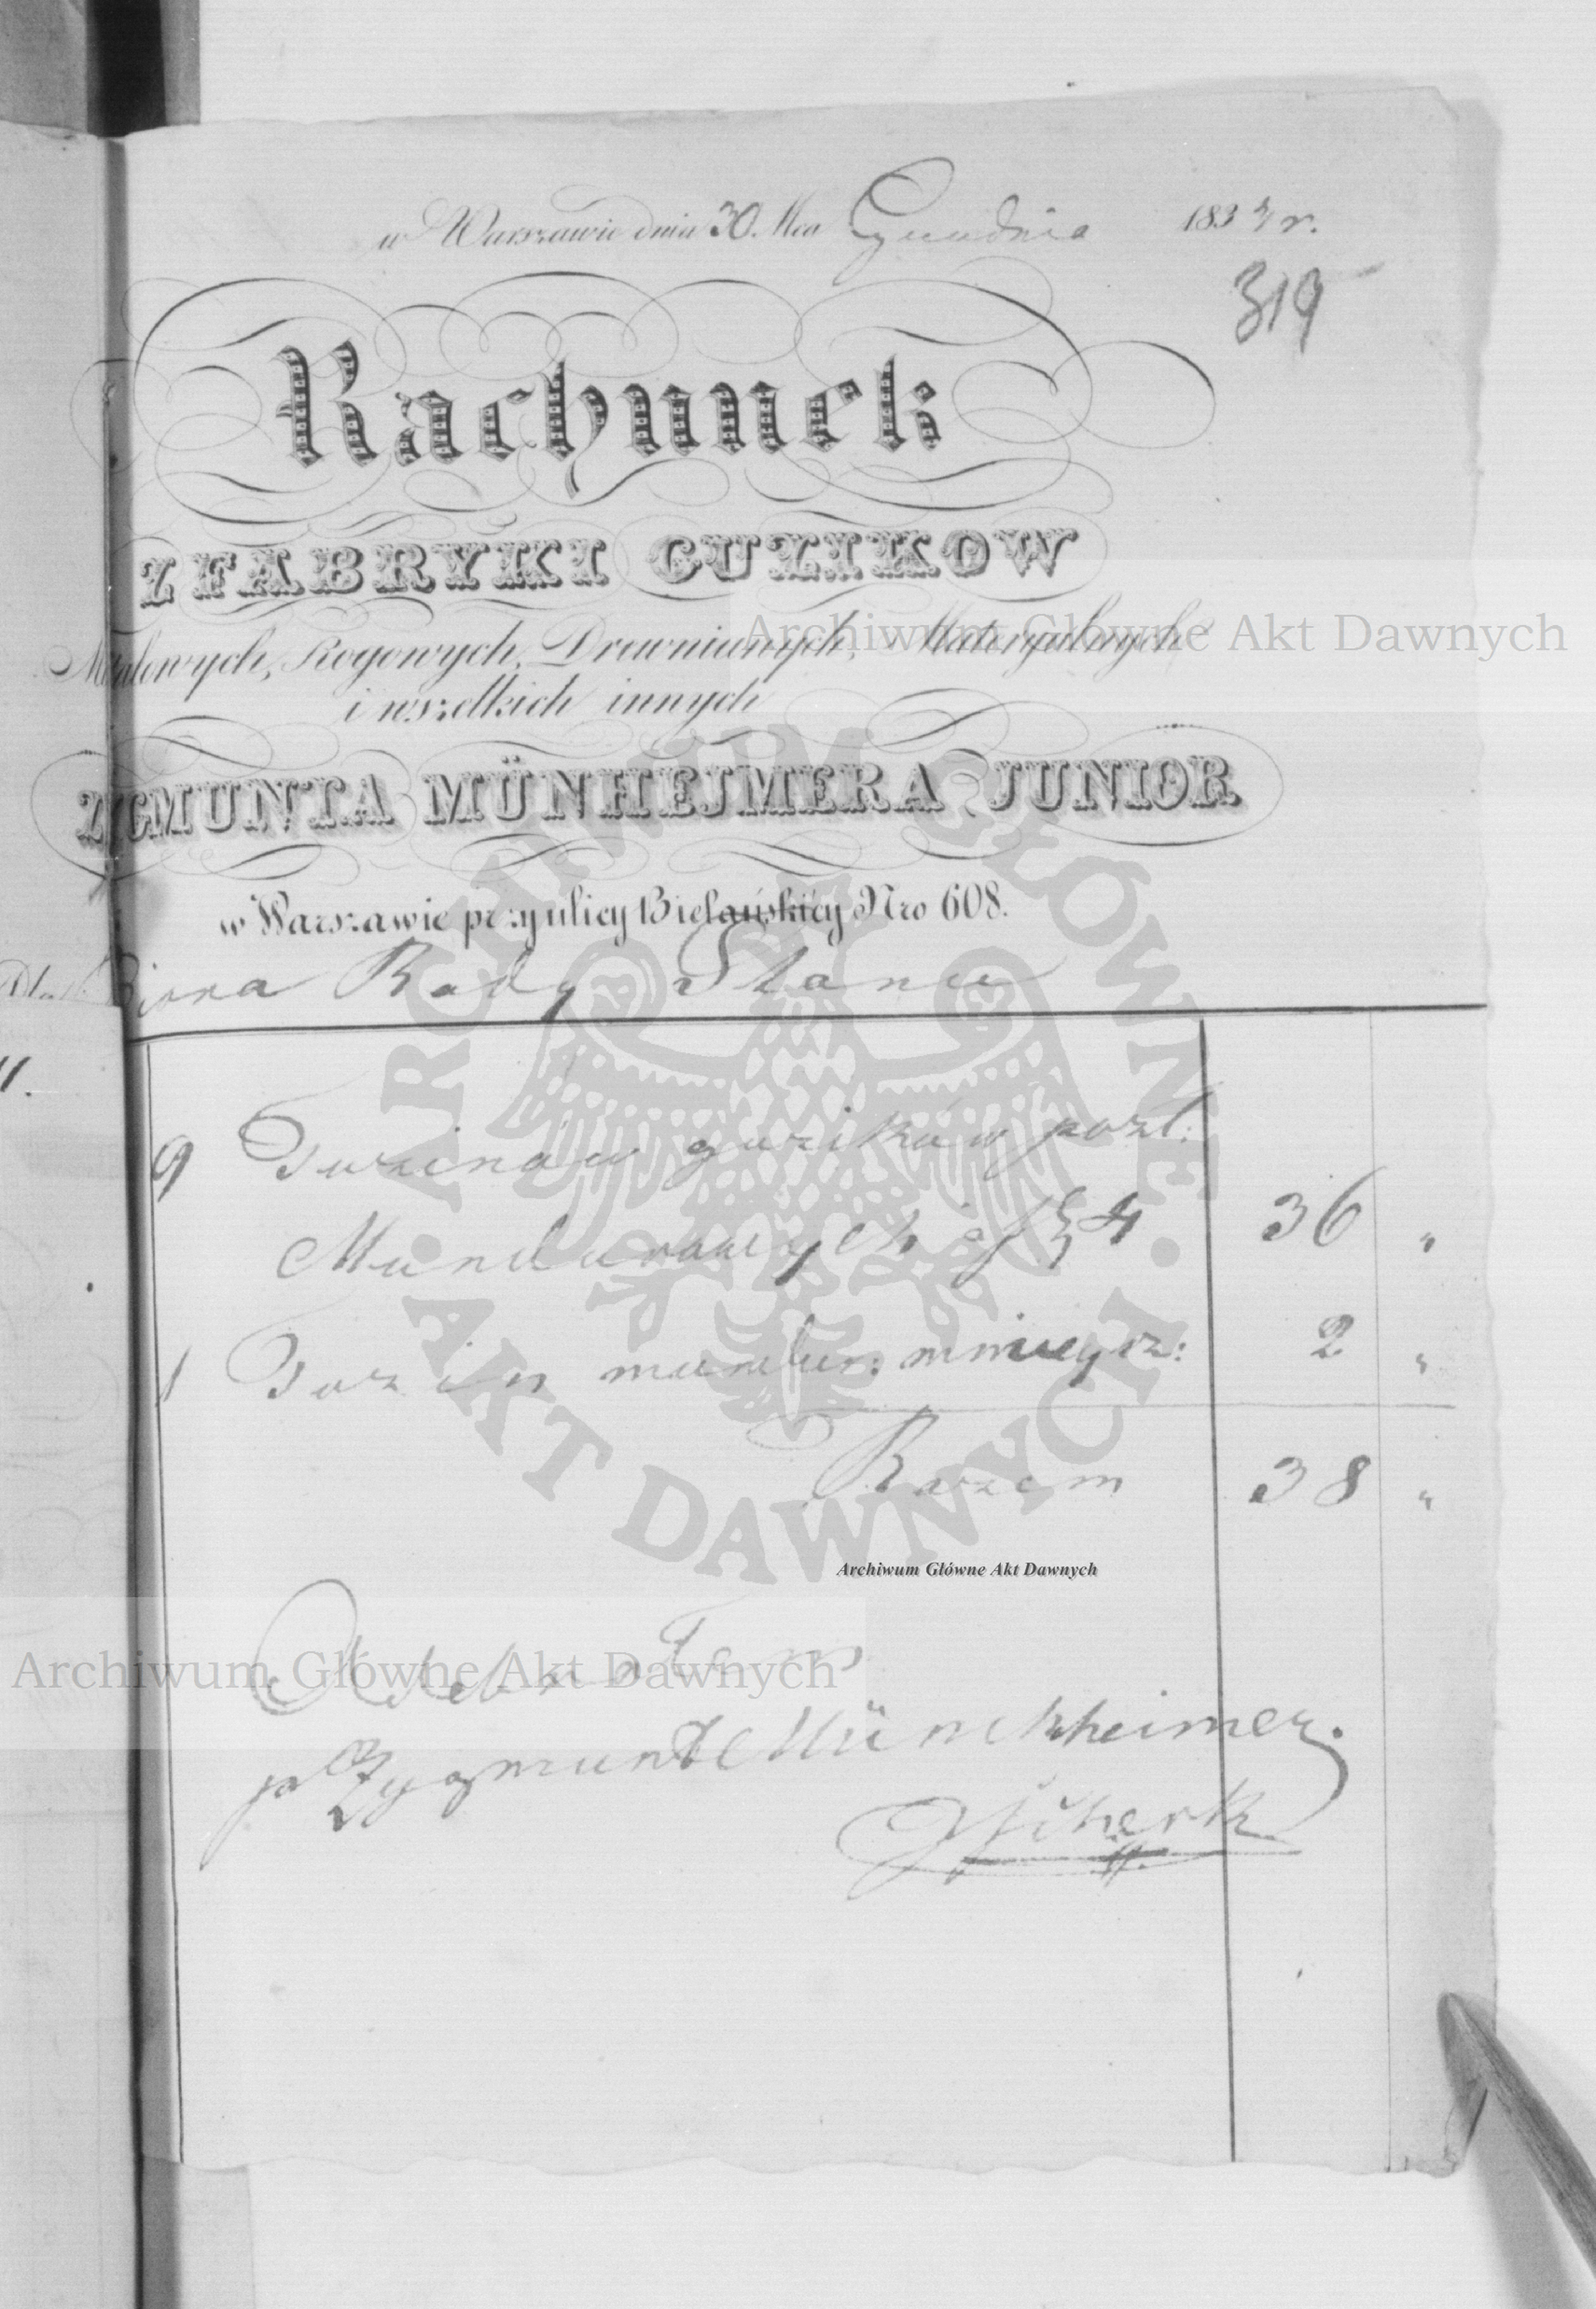 w Warszawie dnia 30. Mca Grudnia 183 r.
319
Rachunek
Z FABRYKI GUZIKOW
Metalowych, Rogowych, Drewnianych, Materyalnych
i wszelkich innych
ZYGMUNTA MÜNHEJMERA JUNIOR
w Warszawie przy ulicy Bielańskiey Nro 608.
Dla Biora Rady Stanu
9 Tuzinów guzików pozł:
Mundurowych 4 36 "
1 Tuzin mundur: mnieysz: 2 "
Razem 38 "
Odebrałem
Zygmunt Münchheimer.
Archiwum Główne Akt Dawnych
Archiwum Główne Akt Dawnych
Archiwum Główne Akt Dawnych
ARCHIWUM GŁÓWNE · AKT DAWNYCH ·